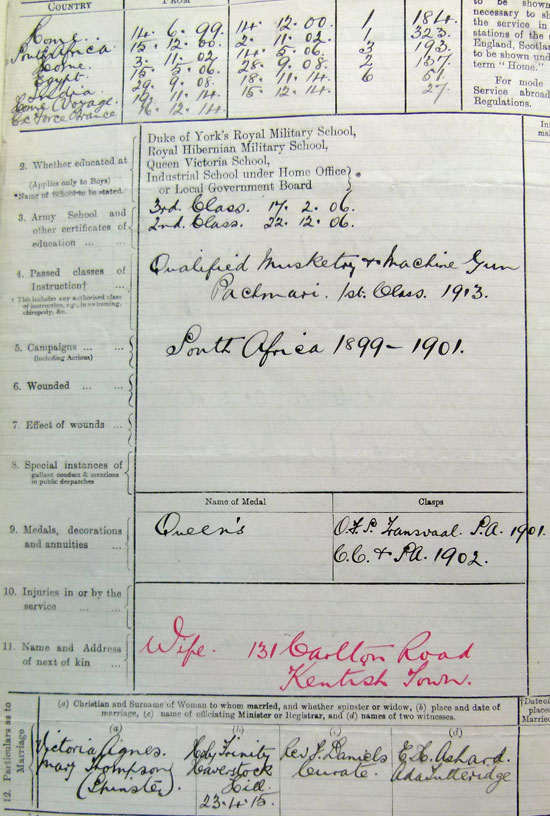 COUNTRY
FROM
to be shown
necessary to sh
the service in
stations of the
England, Scotlan
to be shown und
term "Home."
For mode
Service abroad
Regulations.
Home 14. 6. 99. 14. 12. 00. 1 184
South Africa 15. 12. 00. 2. 11. 02. 1 323.
Home 3. 11. 02 14. 5. 06. 3 193.
Egypt 15. 5. 06. 28. 9. 08. 2 137
India 29. 9. 08. 18. 11. 14 6 51
Home (Voyage. 19. 11. 14 15. 12. 14. 27.
Ex Force France 16. 12. 14
2. Whether educated at
(Applies only to Boys)
*Name of School to be stated.
Duke of York's Royal Military School,
Royal Hibernian Military School,
Queen Victoria School,
Industrial School under Home Office
or Local Government Board
3. Army School and
other certificates of
education ... ...
3rd. Class. 17. 2. 06.
2nd. Class. 22. 12. 06.
4. Passed classes of
Instruction†
† This includes any authorised class
of instruction, e.g., in swimming,
chiropody, &c.
Qualified Musketry & Machine Gun
Pachmari. 1st. Class. 1913.
5. Campaigns ... ...
(including Actions)
South Africa 1899-1901.
6. Wounded ... ...
7. Effect of wounds ...
8. Special instances of
gallant conduct & mentions
in public despatches
Name of Medal
Clasps
9. Medals, decorations
and annuities ...
Queen's
O.F.S. Transvaal. S.A. 1901.
C.C. & S.A. 1902.
10. Injuries in or by the
service ... ...
11. Name and Address
of next of kin ...
Wife. 131 Carlton Road
Kentish Town.
12. Particulars as to
Marriage
(a) Christian and Surname of Woman to whom married, and whether spinster or widow, (b) place and date of
marriage, (c) name of officiating Minister or Registrar, and (d) names of two witnesses.
†Date of
place
Married
(a) (b) (c) (d)
Victoria Agnes.
Mary Thompson
(Spinster)
Holy Trinity
Haverstock
Hill
23.4.15.
Rev J. Daniels
Curate.
E. H. Ashard.
Ada Tutteridge